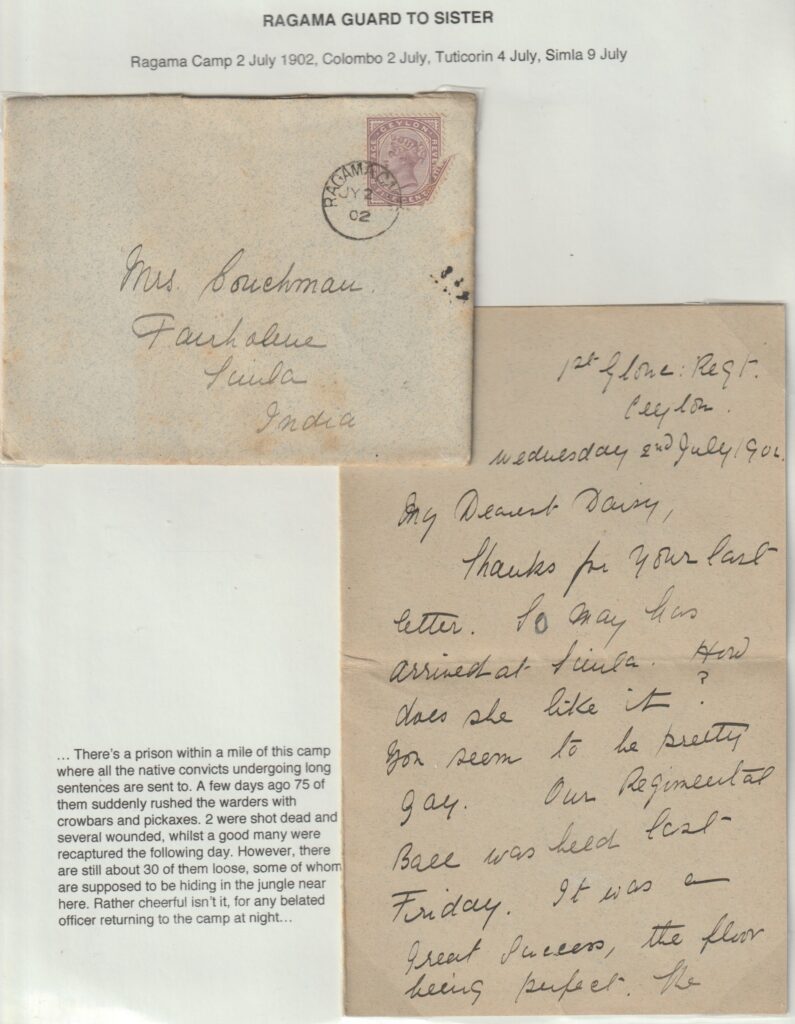 RAGAMA GUARD TO SISTER
Ragama Camp 2 July 1902, Colombo 2 July, Tuticorin 4 July, Simla 9 July
CEYLON
RAGAMA CA
JY 2
02
Mrs. Couchman.
Fairholme
Simla
India
1st Glouc: Regt.
Ceylon.
Wednesday 2nd July 1902.
My Dearest Daisy,
Thanks for your last
letter. So May has
arrived at Simla. How
does she like it?
You seem to be pretty
gay. Our Regimental
Ball was held last
Friday. It was a
great success, the floor
being perfect. We
... There's a prison within a mile of this camp
where all the native convicts undergoing long
sentences are sent to. A few days ago 75 of
them suddenly rushed the warders with
crowbars and pickaxes. 2 were shot dead and
several wounded, whilst a good many were
recaptured the following day. However, there
are still about 30 of them loose, some of whom
are supposed to be hiding in the jungle near
here. Rather cheerful isn't it, for any belated
officer returning to the camp at night...